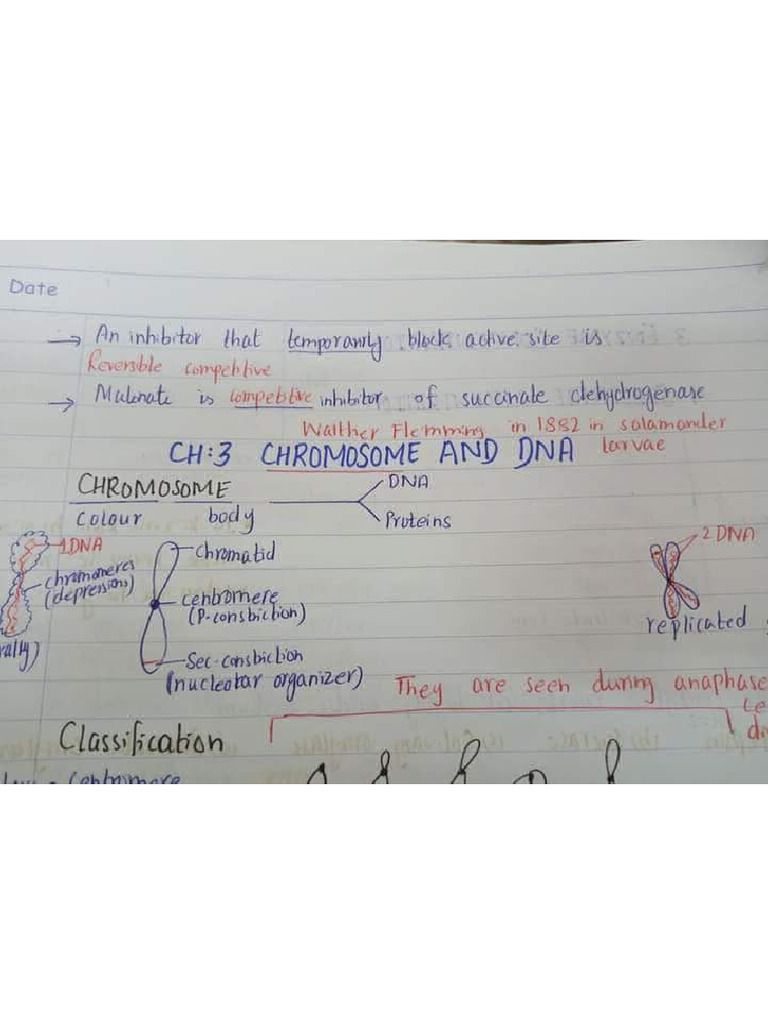 Date
→ An inhibitor that temporarily block active site is
Reversible competitive
→ Malonate is competitive inhibitor of succinate dehydrogenase
Walther Flemming in 1882 in salamander
larvae
CH:3 CHROMOSOME AND DNA
CHROMOSOME
colour body
DNA
Proteins
1DNA
chromomeres
(depression)
Chromatid
centromere
(P-constriction)
Sec-constriction
(nucleolar organizer)
2 DNA
replicated
They are seen during anaphase
Classification
centromere